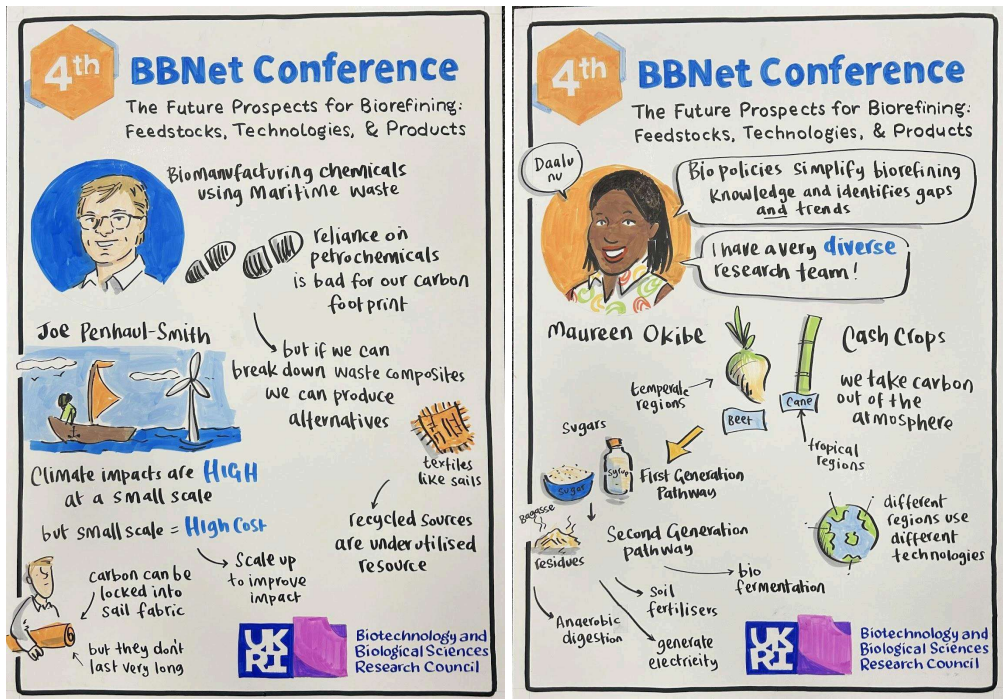 4th
BBNet Conference
The Future Prospects for Biorefining:
Feedstocks, Technologies, & Products
Biomanufacturing chemicals
using Maritime waste
reliance on
petrochemicals
is bad for our carbon
footprint
Joe Penhaul-Smith
but if we can
break down waste composites
we can produce
alternatives
textiles
like sails
Climate impacts are HIGH
at a small scale
but small scale = High Cost
recycled sources
are underutilised
resource
Scale up
to improve
impact
carbon can be
locked into
sail fabric
but they don't
last very long
UK
RI
Biotechnology and
Biological Sciences
Research Council
4th
BBNet Conference
The Future Prospects for Biorefining:
Feedstocks, Technologies, & Products
Daalu
nu
Bio policies simplify biorefining
Knowledge and identifies gaps
and trends
I have a very diverse
research team!
Maureen Okibe
Cash Crops
temperate
regions
Beet
Cane
we take carbon
out of the
atmosphere
tropical
regions
Sugars
Sugar
Syrup
First Generation
Pathway
Bagasse
residues
Second Generation
pathway
different
regions use
different
technologies
bio
fermentation
Soil
fertilisers
Anaerobic
digestion
generate
electricity
UK
RI
Biotechnology and
Biological Sciences
Research Council